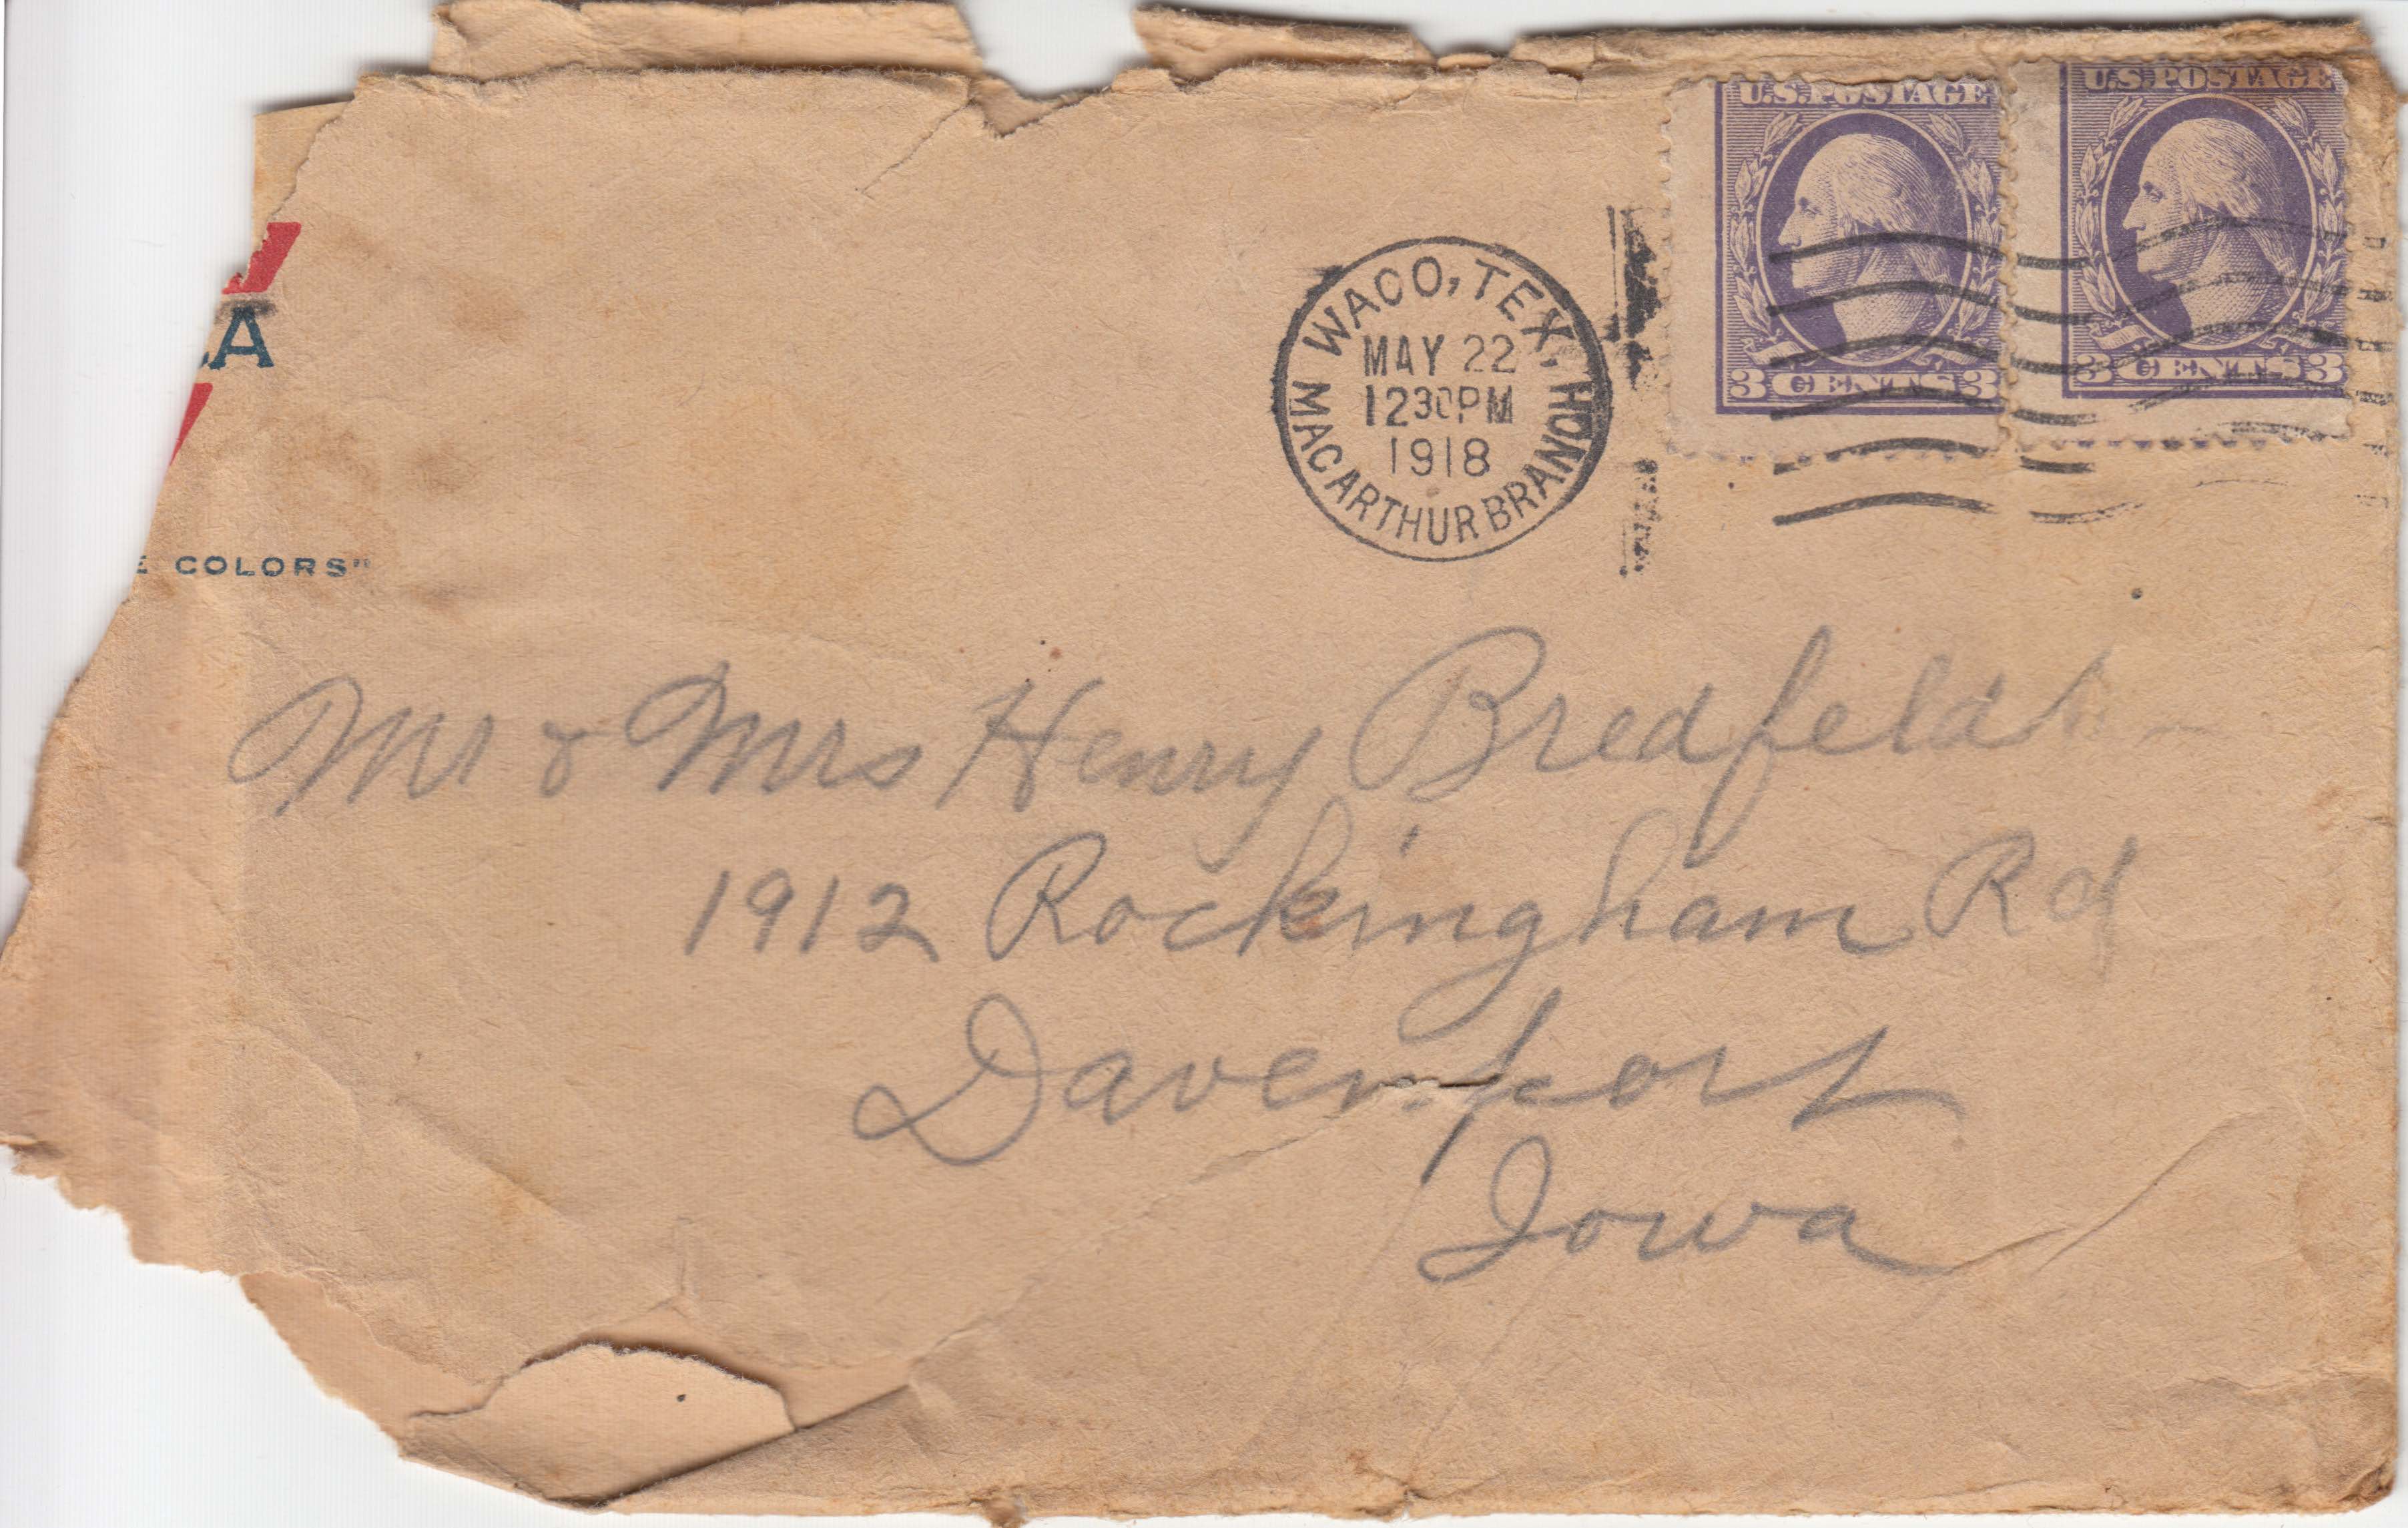 U.S. POSTAGE U.S. POSTAGE
3 CENTS 3 3 CENTS 3
WACO, TEX,
MAY 22
1230PM
1918
MAC ARTHUR BRANCH
A
COLORS"
Mr & Mrs Henry Bredfeldt
1912 Rockingham Rd
Davenport
Iowa